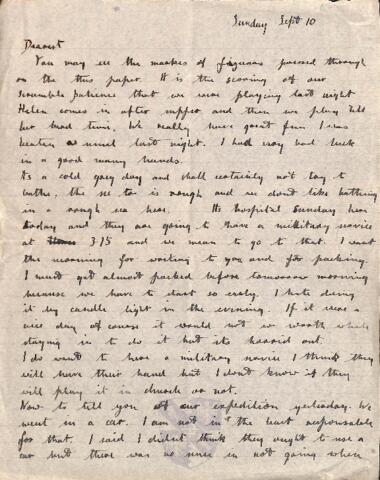 Sunday Sept 10
Dearest
You may see the marks of figures passed through
on the this paper. It is the scoring of our
scramble patience that we were playing last night
Helen comes in after supper and then we play till
her bed time. We really have great fun. I was
beaten as usual last night. I had very bad luck
in a good many hands.
Its a cold grey day and shall certainly not try to
bathe, the sea too is rough and we dont like bathing
in a rough sea here. Its hospital Sunday here
today and they are going to have a military service
at 3.15 and we mean to go to that. I want
this morning for writing to you and for packing.
I must get almost packed before tomorrow morning
because we have to start so early. I hate doing
it by candle light in the evening. If it was a
nice day of course it would not be worth while
staying in to do it but its horrid out.
I do want to hear a military service I think they
will have their band but I dont know if they
will play it in church or not.
Now to tell you of our expedition yesterday. We
went in a car. I am not in the least responsible
for that. I said I didnt think they ought to use a
car but there was no sense in not going when